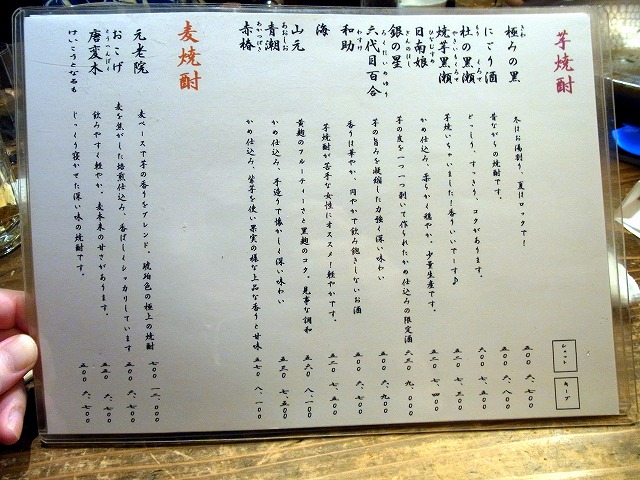 芋焼酎
ショット
キープ
極みの黒 冬はお湯割り、夏はロックで! 五〇〇
にごり酒 昔ながらの焼酎です。 五〇〇
杜の黒瀬 どっしり、すっきり、コクがあります。 六〇〇
焼芋黒瀬 芋焼いちゃいました!香りいいでーす♪
日南娘 かめ仕込み、柔らかく穏やか、少量生産です。
銀の星 芋の皮を一つ一つ剥いて作られたかめ仕込みの限定酒 六三〇 九、〇〇〇
六代目百合 芋の旨みを凝縮した力強く深い味わい
和助 香りは華やか、円やかで飲み飽きしないお酒
海 芋焼酎が苦手な女性にオススメ!軽やかです。
山元 黄麹のフルーティーさと黒麹のコク。見事な調和 五六〇 八、一〇〇
青潮 かめ仕込み、手造りで懐かしく深い味わい 五三〇 七、五〇〇
赤椿 かめ仕込み、紫芋を使い果実の様な上品な香りと甘味 五七〇 八、一〇〇
麦焼酎
元老院 麦ベースで芋の香りをブレンド。琥珀色の極上の焼酎 七〇〇
おこげ 麦を焦がした焙煎仕込み、香ばしくシッカリしています 五五〇 六、七〇〇
唐変木 飲みやすく軽やか。麦本来の甘さがあります。 五五〇 六、七〇〇
けいこうとなるも じっくり寝かせた深い味の焼酎です。 五〇〇 六、七〇〇